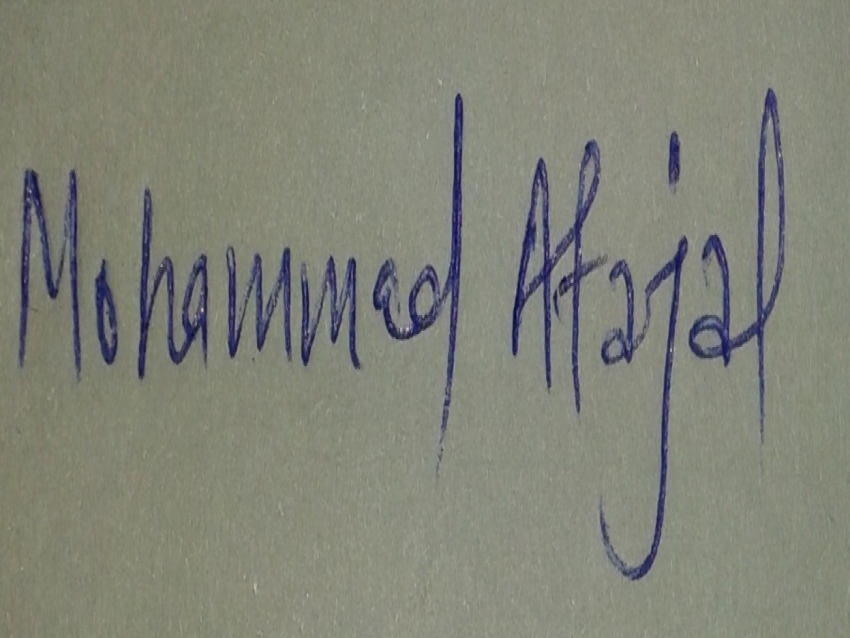 Mohammed Afajal